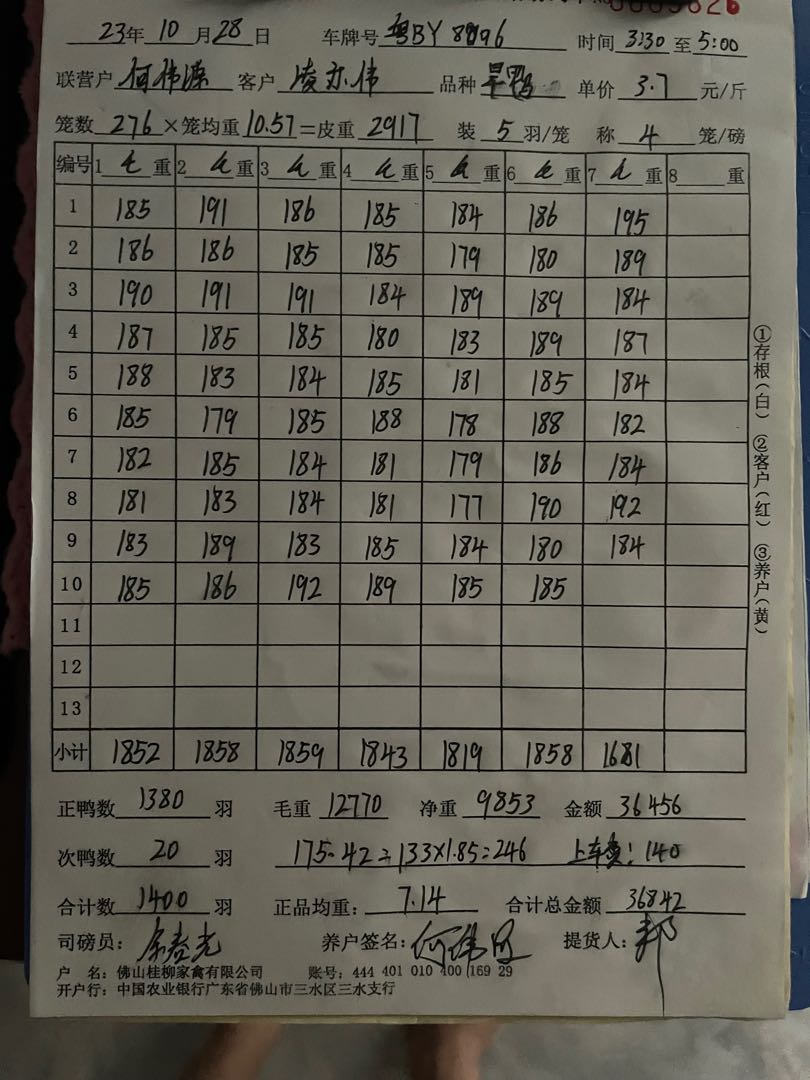 23年 10 月 28 日 车牌号 粤BY 8896 时间 3:30 至 5:00
联营户 何伟源 客户 凌亦伟 品种 单价 3.7 元/斤
笼数 276 ×笼均重 10.57 =皮重 2917 装 5 羽/笼 称 4 笼/磅
编号 1 毛 重 2 毛 重 3 毛 重 4 毛 重 5 毛 重 6 毛 重 7 毛 重 8 重
1 185 191 186 185 184 186 195
2 186 186 185 185 179 180 189
3 190 191 191 184 189 189 184
4 187 185 185 180 183 189 187
5 188 183 184 185 181 185 184
6 185 179 185 188 178 188 182
7 182 185 184 181 179 186 184
8 181 183 184 181 177 190 192
9 183 189 183 185 184 180 184
10 185 186 192 189 185 185
11
12
13
小计 1852 1858 1859 1843 1819 1858 1681
正鸭数 1380 羽 毛重 12770 净重 9853 金额 36456
次鸭数 20 羽 175-42=133×1.85=246 上车费: 140
合计数 1400 羽 正品均重: 7.14 合计总金额 36842
司磅员: 养户签名: 提货人:
户 名: 佛山桂柳家禽有限公司 账号: 444 401 010 400 169 29
开户行: 中国农业银行广东省佛山市三水区三水支行
①存根(白) ②客户(红) ③养户(黄)